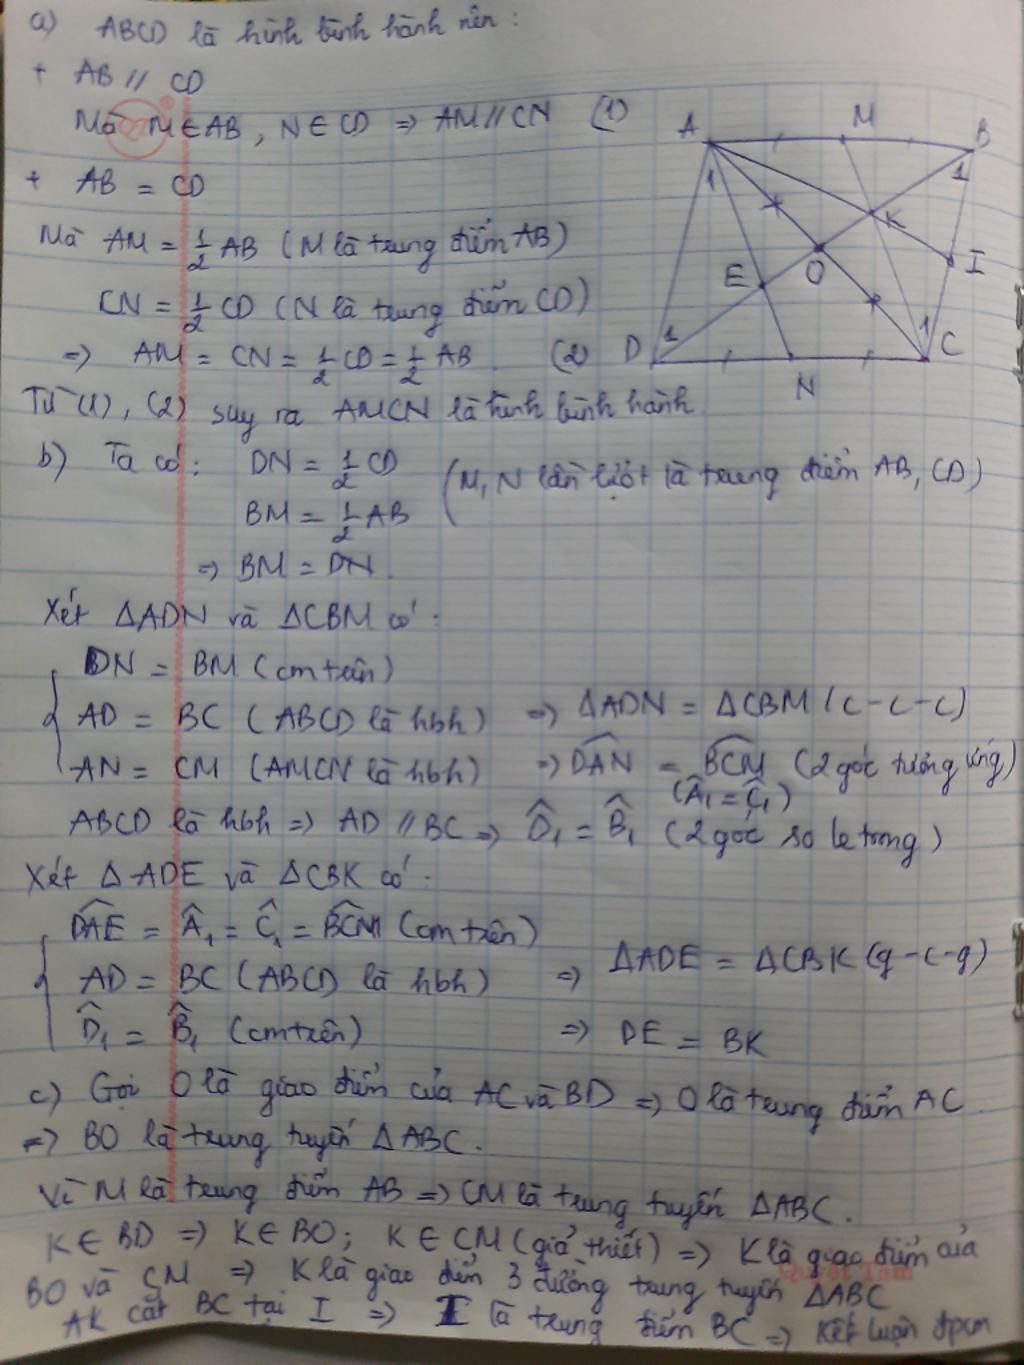 a) ABCD là hình bình hành nên :
+ AB // CD
Mà M ∈ AB, N ∈ CD => AM // CN (1)
+ AB = CD
Mà AM = 1/2 AB (M là trung điểm AB)
CN = 1/2 CD (N là trung điểm CD)
=> AM = CN = 1/2 CD = 1/2 AB (2)
Từ (1), (2) suy ra AMCN là hình bình hành
A M B 1 1 K I E O D 1 1 C N
b) Ta có : DN = 1/2 CD (M, N lần lượt là trung điểm AB, CD)
BM = 1/2 AB
=> BM = DN.
Xét ΔADN và ΔCBM có :
DN = BM (cm trên)
AD = BC (ABCD là hbh) => ΔADN = ΔCBM (c-c-c)
AN = CM (AMCN là hbh) => DAN = BCM (2 góc tương ứng)
(Â1 = Ĉ1)
ABCD là hbh => AD // BC => D̂1 = B̂1 (2 góc so le trong)
Xét ΔADE và ΔCBK có :
DAE = Â1 = Ĉ1 = BCM (cm trên)
AD = BC (ABCD là hbh) => ΔADE = ΔCBK (g-c-g)
D̂1 = B̂1 (cm trên) => DE = BK
c) Gọi O là giao điểm của AC và BD => O là trung điểm AC
=> BO là trung tuyến ΔABC.
Vì M là trung điểm AB => CM là trung tuyến ΔABC.
K ∈ BD => K ∈ BO ; K ∈ CM (giả thiết) => K là giao điểm của
BO và CM => K là giao điểm 3 đường trung tuyến ΔABC
AK cắt BC tại I => I là trung điểm BC => Kết luận đpcm